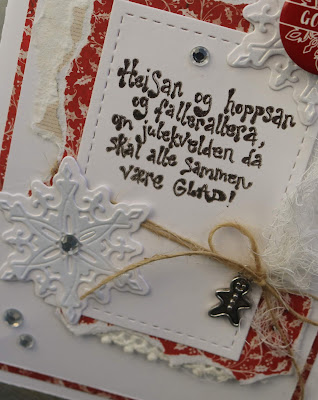 HeiSan og hoppsan
og fallerallera,
om julekvelden da
skal alle sammen
være GLAD!